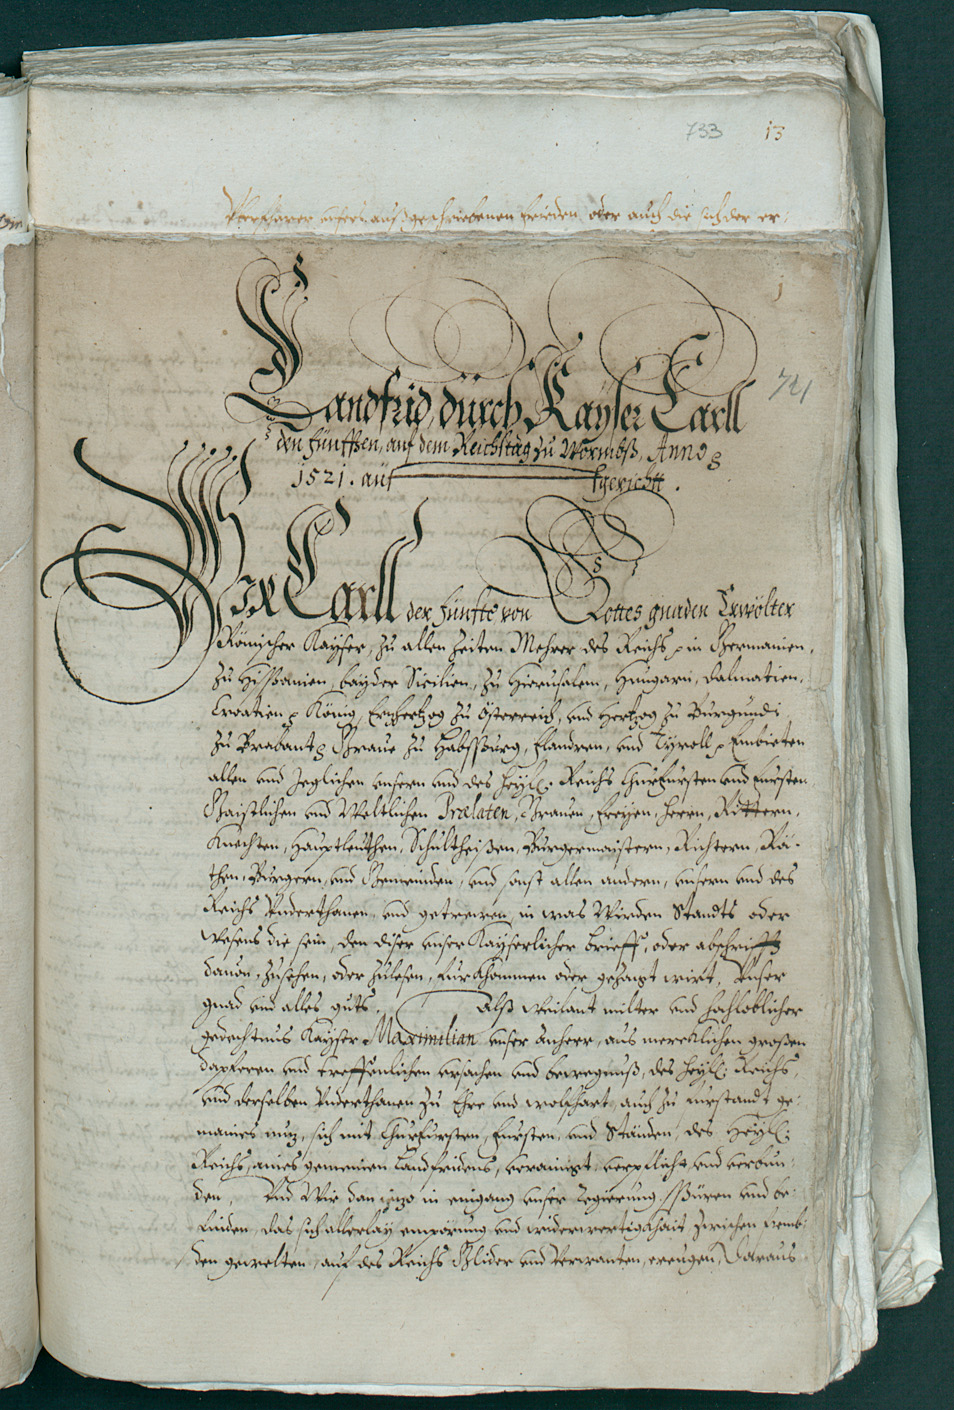 733 13
Verschärer unsers auß geschriebenen frieden, oder auch die ächder er-
1
Landfrid, durch Kayser Carll
741
den Fünfften, auf dem Reichstag zu Wormbß, Anno
1521. auf gericht.
Wir Carll der Fünfte von Gottes gnaden Erwölter
Römischer Kayser, zu allen Zeiten Mehrer des Reichs, in Germanien,
zu Hispanien, bayder Sicilien, zu Hierusalem, Hungarn, Dalmatien,
Croatien König, Ertzhertzog zu Österreich, und Hertzog zu Burgundi
zu Brabant Graue zu Habspurg, Flandern, und Tyroll Embieten
allen und Jeglichen unsern und des Heyl: Reichs Churfürsten und Fürsten
Gaistlichen und Weltlichen Prælaten, Grauen, Freyen, Herrn, Rittern,
Knechten, Haupleuthen, Schultheißen, Burgermaistern, Richtern, Rä-
then, Burgern, und Gemeinden, und sonst allen andern, unsern und des
Reichs Underthanen, und getrewen, in was Wirden Standts oder
Wesens die sein, den diser unser Kayserlicher brieff, oder abschrifft
dauon, zusehen, oder zulesen, fürkhommen oder gezaigt wirt, Unser
gnad und alles guts. Alß weilant milter und hochloblicher
gedechtnus Kayser Maximilian unser Anherr, aus mercklichen großen
dapferen und treffenlichen ursachen und bewegnuß, des Heyl: Reichs
und derselben Underthanen zu Ehre und wolfhart, auch zu urstandt ge-
maines nuz, sich mit Churfürsten, Fürsten, und Ständen, des Heyl:
Reichs, aines gemeinen Landfridens, verainigt verpflicht und verbun-
den. Und Wir dan yezo in eingang unser Regierung, spüren und be-
finden, das sich allerlay empörung und widerwertigkhait zwischen fremb-
den gewelten, auf des Reichs Glider und Verwanten, ereugen, Daraus